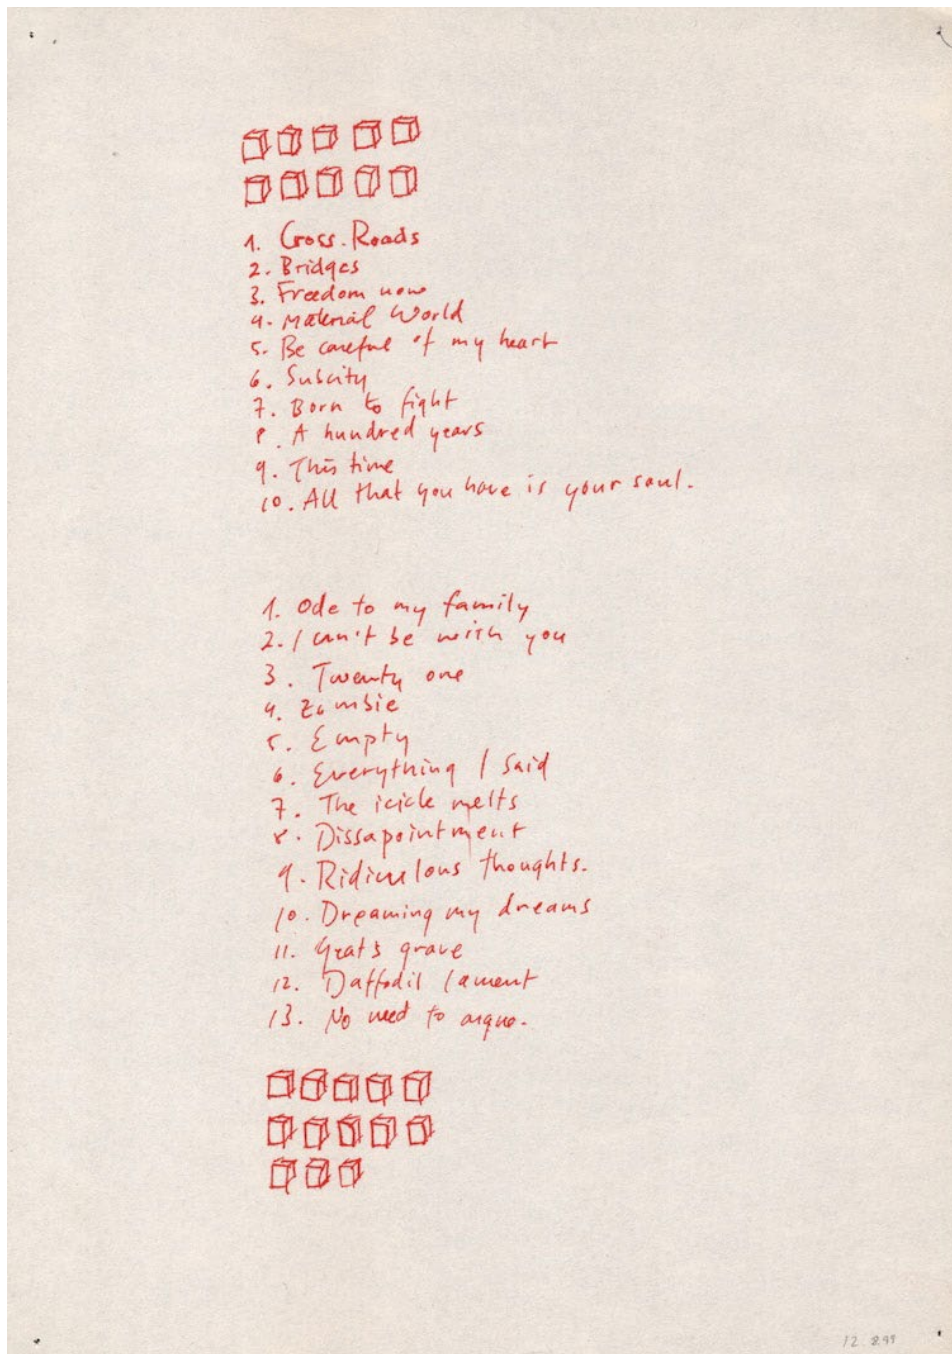 1. Cross. Roads
2. Bridges
3. Freedom now
4. Material World
5. Be careful of my heart
6. Subcity
7. Born to fight
8. A hundred years
9. This time
10. All that you have is your soul.
1. Ode to my family
2. I can't be with you
3. Twenty one
4. Zombie
5. Empty
6. Everything I said
7. The icicle melts
8. Dissapointment
9. Ridiculous thoughts.
10. Dreaming my dreams
11. Yeat's grave
12. Daffodil lament
13. No need to argue.
12.